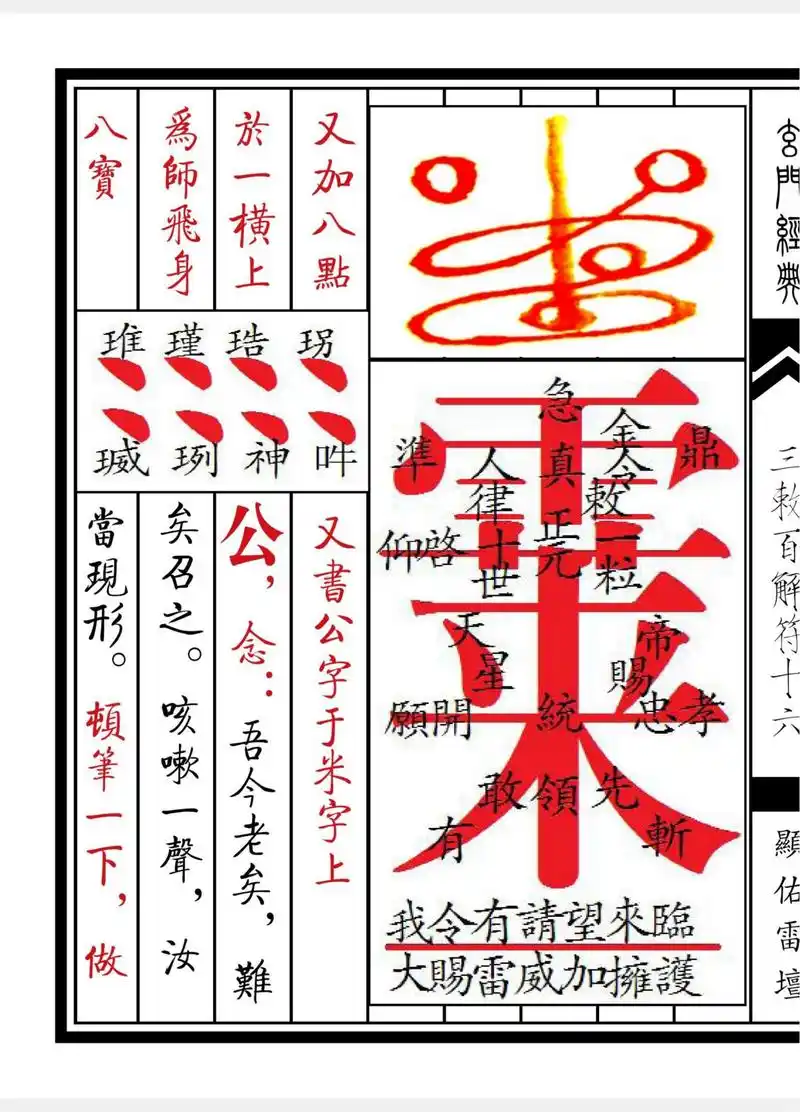 玄門經典
三敕百解符十六
顯佑雷壇
急
金
準人真令鼎
律敕
正
仰啓十元一粒
世
天帝
星賜
願開統忠孝
敢領先
有斬
我令有請望來臨
大賜雷威加擁護
又加八點
於一橫上
爲師飛身
八寶
瑾琟
吽神
又書公字于米字上
公，念：吾今老矣，難
矣召之。咳嗽一聲，汝
當現形。頓筆一下，做